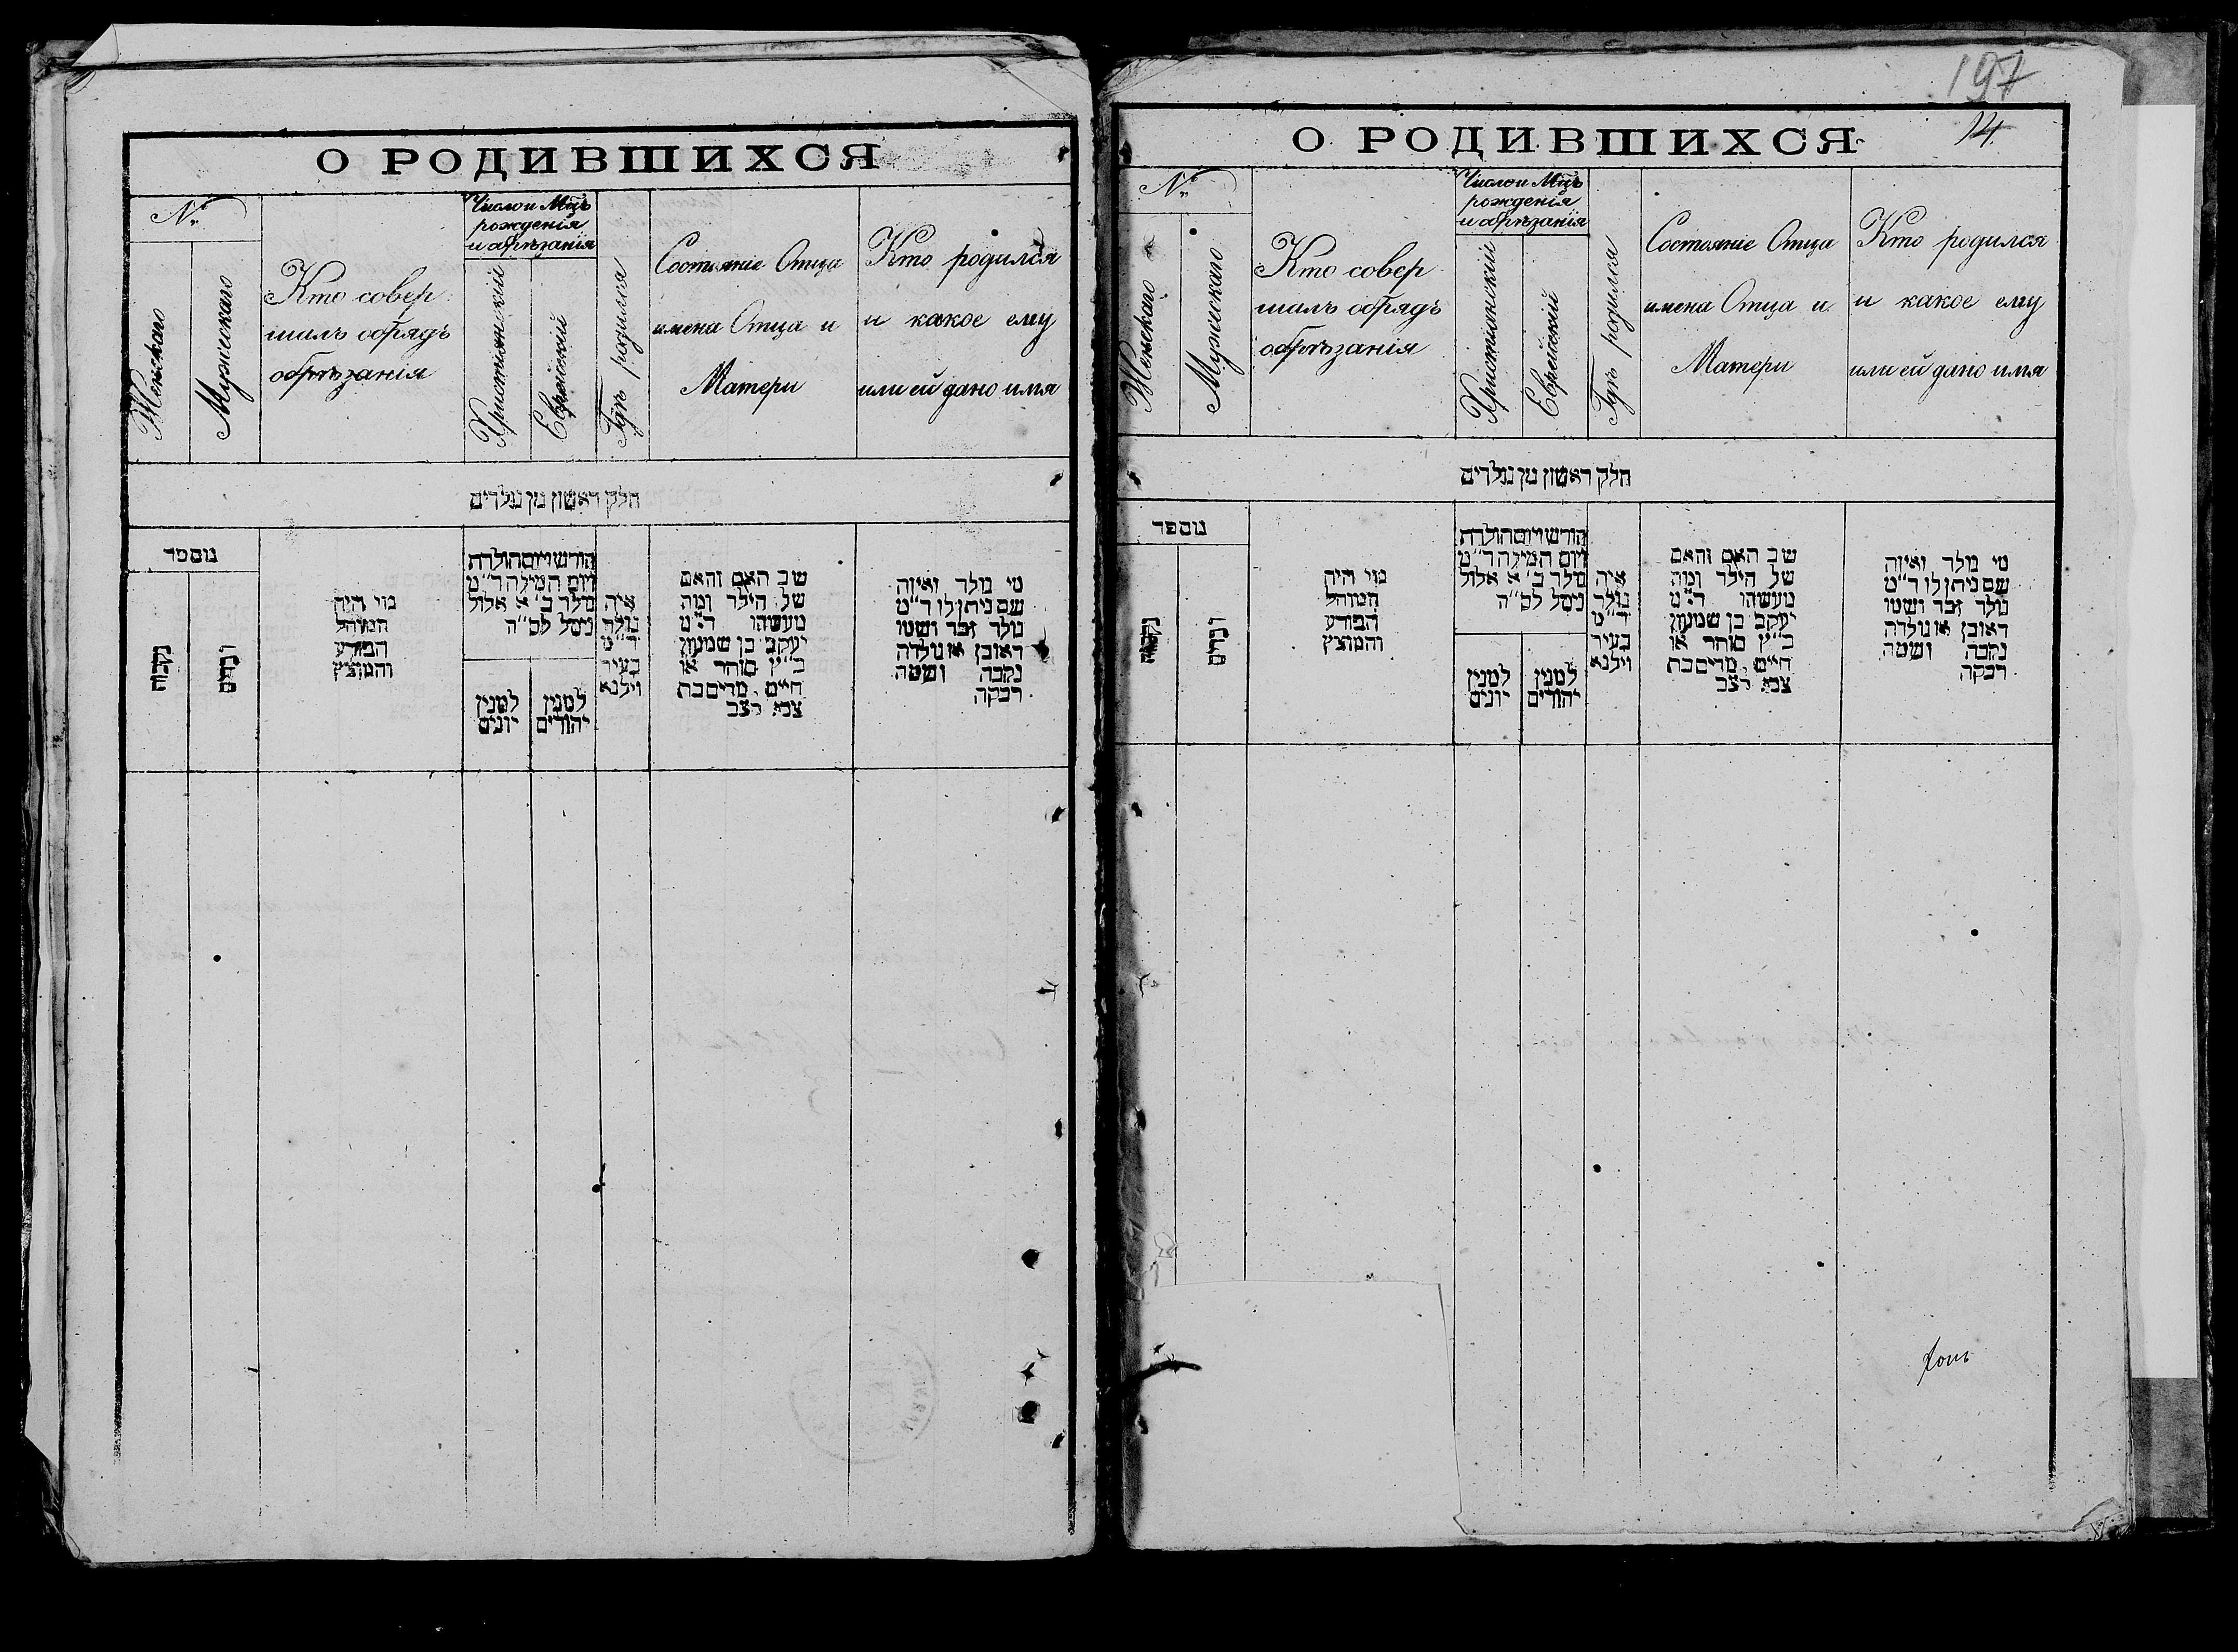 О РОДИВШИХСЯ
№
Женскаго
Мужескаго
Кто совер
шалъ обрядъ
обрѣзанія
Число и Мцъ
рожденія
и обрѣзанія
Христіанскій
Еврейскій
Гдѣ родился
Состояніе Отца
имена Отца и
Матери
Кто родился
и какое ему
или ей дано имя
חלק ראשון מן נולדים
מספר
נקבות
זכרים
מי היה
המוהל
הפורע
והמוצץ
חודש ויום הולדת
ויום המילה ד"מ
נולד ב' א אלול
נימל לס"ה
למנין
יונים
למנין
יהודים
איה
נולד
ד"מ
בעיר
וילנא
שב האם והאם
של הילד ומה
מעשהו ד"מ
יעקב בן שמעון
כ"ץ סוחר או
חיים, מרים בת
צבי קצב
מי נולד ואיזה
שם ניתן לו ד"מ
נולד זכר ושמו
ראובן או נולדה
נקבה ושמה
רבקה
197
14
О РОДИВШИХСЯ
№
Женскаго
Мужескаго
Кто совер
шалъ обрядъ
обрѣзанія
Число и Мцъ
рожденія
и обрѣзанія
Христіанскій
Еврейскій
Гдѣ родился
Состояніе Отца
имена Отца и
Матери
Кто родился
и какое ему
или ей дано имя
חלק ראשון מן נולדים
מספר
נקבות
זכרים
מי היה
המוהל
הפורע
והמוצץ
חודש ויום הולדת
ויום המילה ד"מ
נולד ב' א אלול
נימל לס"ה
למנין
יונים
למנין
יהודים
איה
נולד
ד"מ
בעיר
וילנא
שב האם והאם
של הילד ומה
מעשהו ד"מ
יעקב בן שמעון
כ"ץ סוחר או
חיים, מרים בת
צבי קצב
מי נולד ואיזה
שם ניתן לו ד"מ
נולד זכר ושמו
ראובן או נולדה
נקבה ושמה
רבקה